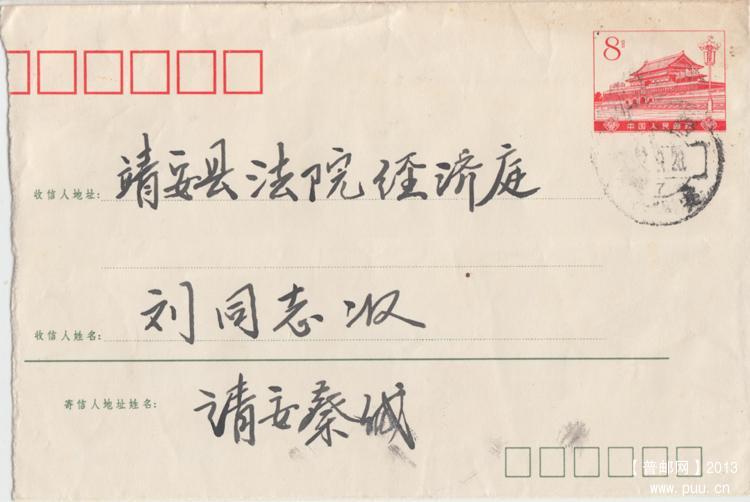 8分
中国人民邮政
收信人地址: 靖安县法院经济庭
收信人姓名: 刘同志收
寄信人地址姓名: 靖安蔡缄
【普邮网】2013
www.puu.cn